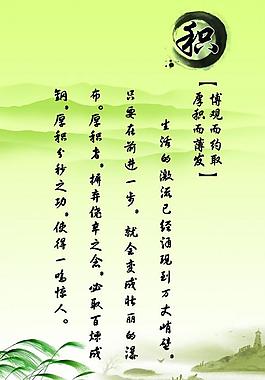 积
【博观而约取
厚积而薄发】
生活的激流已经涌现到万丈峭壁。
只要在前进一步，就会变成壮丽的瀑
布。厚积者。摒弃侥幸之念，必取百炼成
钢。厚积分秒之功。使得一鸣惊人。